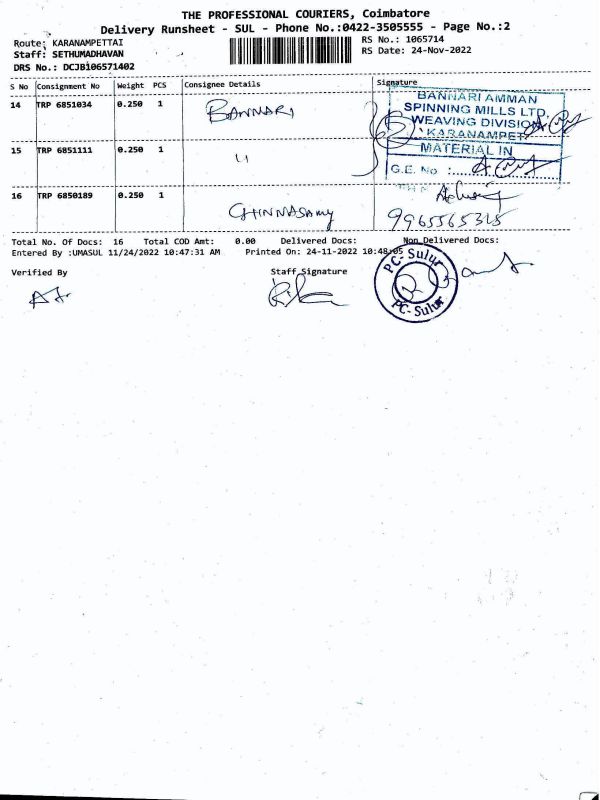 THE PROFESSIONAL COURIERS, Coimbatore
Delivery Runsheet - SUL - Phone No.:0422-3505555 - Page No.:2
Route: KARANAMPETTAI RS No.: 1065714
Staff: SETHUMADHAVAN RS Date: 24-Nov-2022
DRS No.: DCJB106571402
S No Consignment No Weight PCS Consignee Details Signature
14 TRP 6851034 0.250 1 BANNARI
BANNARI AMMAN
SPINNING MILLS LTD.
WEAVING DIVISION
KARANAMPET
15 TRP 6851111 0.250 1 4
MATERIAL IN
G.E. No :
16 TRP 6850189 0.250 1 CHINNASAMY
9965565315
Total No. Of Docs: 16 Total COD Amt: 0.00 Delivered Docs: Non Delivered Docs:
Entered By :UMASUL 11/24/2022 10:47:31 AM Printed On: 24-11-2022 10:48:05
Verified By Staff Signature
PC-Sulur
PC-Sulur